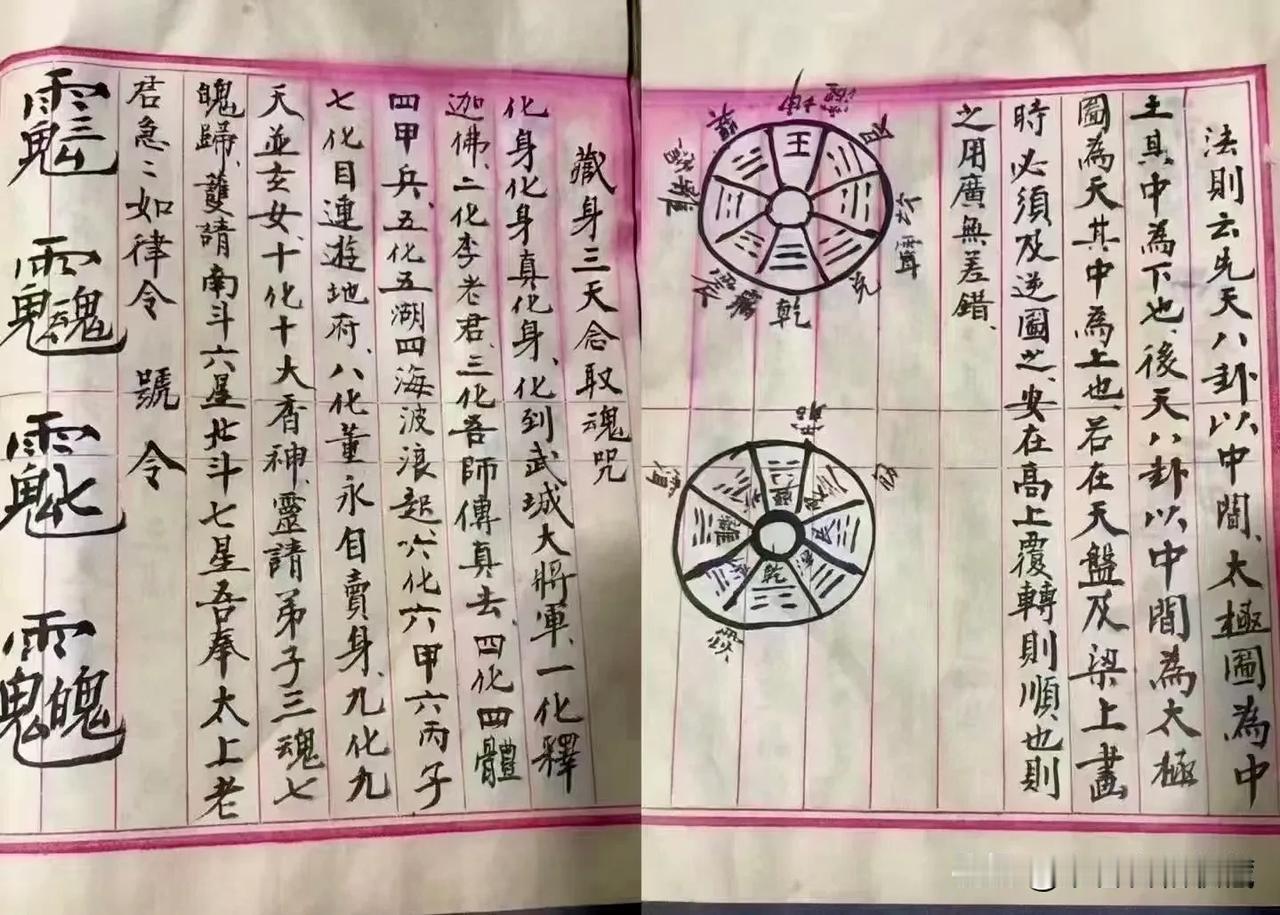 法則云先天八卦以中間、太極圖為中
主其中為下也、後天八卦以中間為太極
圖為天其中為上也、若在天盤及梁上畫
時必須及逆圖之、安在高上覆轉則順、也則
之用廣無差錯、
王
坤
艮
坎
兌
乾
乾
藏身三天念取魂咒
化身化身真化身、化到武城大將軍、一化釋
迦佛、二化李老君、三化吾師傳真去、四化四體
四甲兵、五化五湖四海波浪起、六化六甲六丙子
七化目連遊地府、八化董永自賣身、九化九
天並玄女、十化十大香神、靈請弟子三魂七
魄歸、護請南斗六星北斗七星吾奉太上老
君急二如律令 號 令